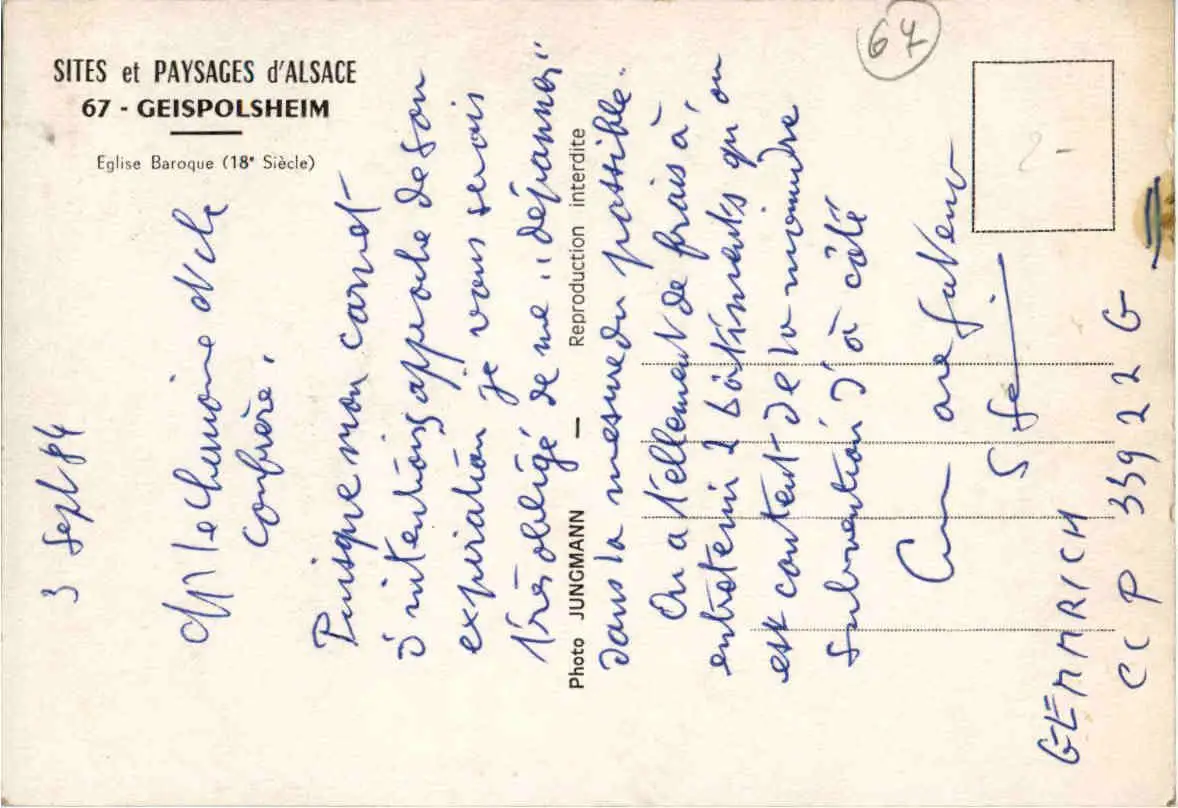 SITES et PAYSAGES d'ALSACE
67 - GEISPOLSHEIM
Eglise Baroque (18e Siècle)
67
2 -
Photo JUNGMANN — Reproduction interdite
3 Sept 84
M le Chanoine et ch
Confrère,
Puisque mon carnet
d'intentions approche de son
expiration je vous serais
très obligé de me "dépanner"
dans la mesure du possible.
On a tellement de frais à
entretenir 2 bâtiments qu'on
est content de la moindre
subvention d'à côté
Cum
GEMMRICH
CCP 339 22 G